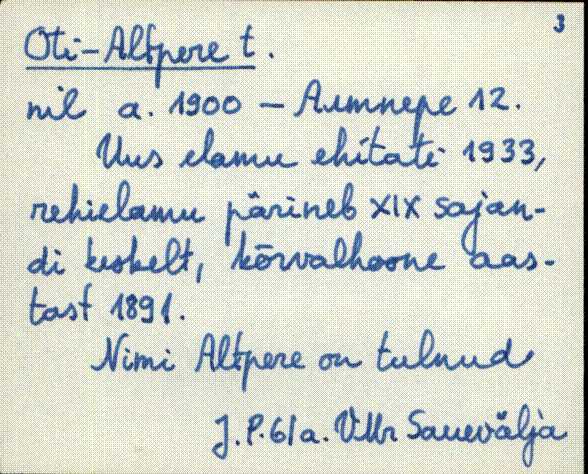 3
Oti-Altpere t.
nil a. 1900 — Алтпере 12.
Uus elamu ehitati 1933,
rehielamu pärineb XIX sajan-
di keskelt, kõrvalhoone aas-
tast 1891.
Nimi Altpere on tulnud
J.P. 61a. Vllr Sauevälja